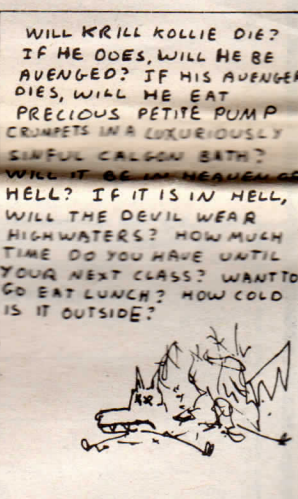 WILL KRILL KOLLIE DIE?
IF HE DOES, WILL HE BE
AVENGED? IF HIS AVENGER
DIES, WILL HE EAT
PRECIOUS PETITE PUMP
CRUMPETS IN A LUXURIOUSLY
SINFUL CALGON BATH?
WILL IT BE IN HEAVEN OR
HELL? IF IT IS IN HELL,
WILL THE DEVIL WEAR
HIGHWATERS? HOW MUCH
TIME DO YOU HAVE UNTIL
YOUR NEXT CLASS? WANT TO
GO EAT LUNCH? HOW COLD
IS IT OUTSIDE?